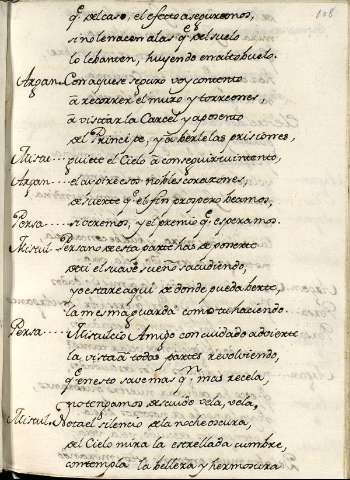 108
q.^e del caso, el efecto aseguremos,
si no le nacen alas q.^e del suelo
lo lebanten, huyendo en alto buelo.
Arzan. Con aquese seguro voy contento
a recorrer el muro y torreones,
a visitar la Carcel y aposento
del Principe, y a berle las prisiones,
quiete el Cielo a conseguir su intento,
Arzan.... el ayudre estos nobles corazones,
de suerte q.^e el fin prospero beamos,
Persa.... si aremos, y el premio q.^e esperamos.
Misiul. Persano de esta parte has de ponerte
de ti el suave sueño sacudiendo,
yo estare aqui de donde pueda berte,
la mesma guarda como tu haciendo.
Persa.... Misiulcio Amigo con cuidado advierte
la vista a todas partes revolviendo,
q.^e en esto save mas q.^n mas recela,
no tengamos descuido vela, vela,
Misiul. Nota el silencio de la noche oscura,
del Cielo mira la estrellada cumbre,
contempla la belleza y hermosura